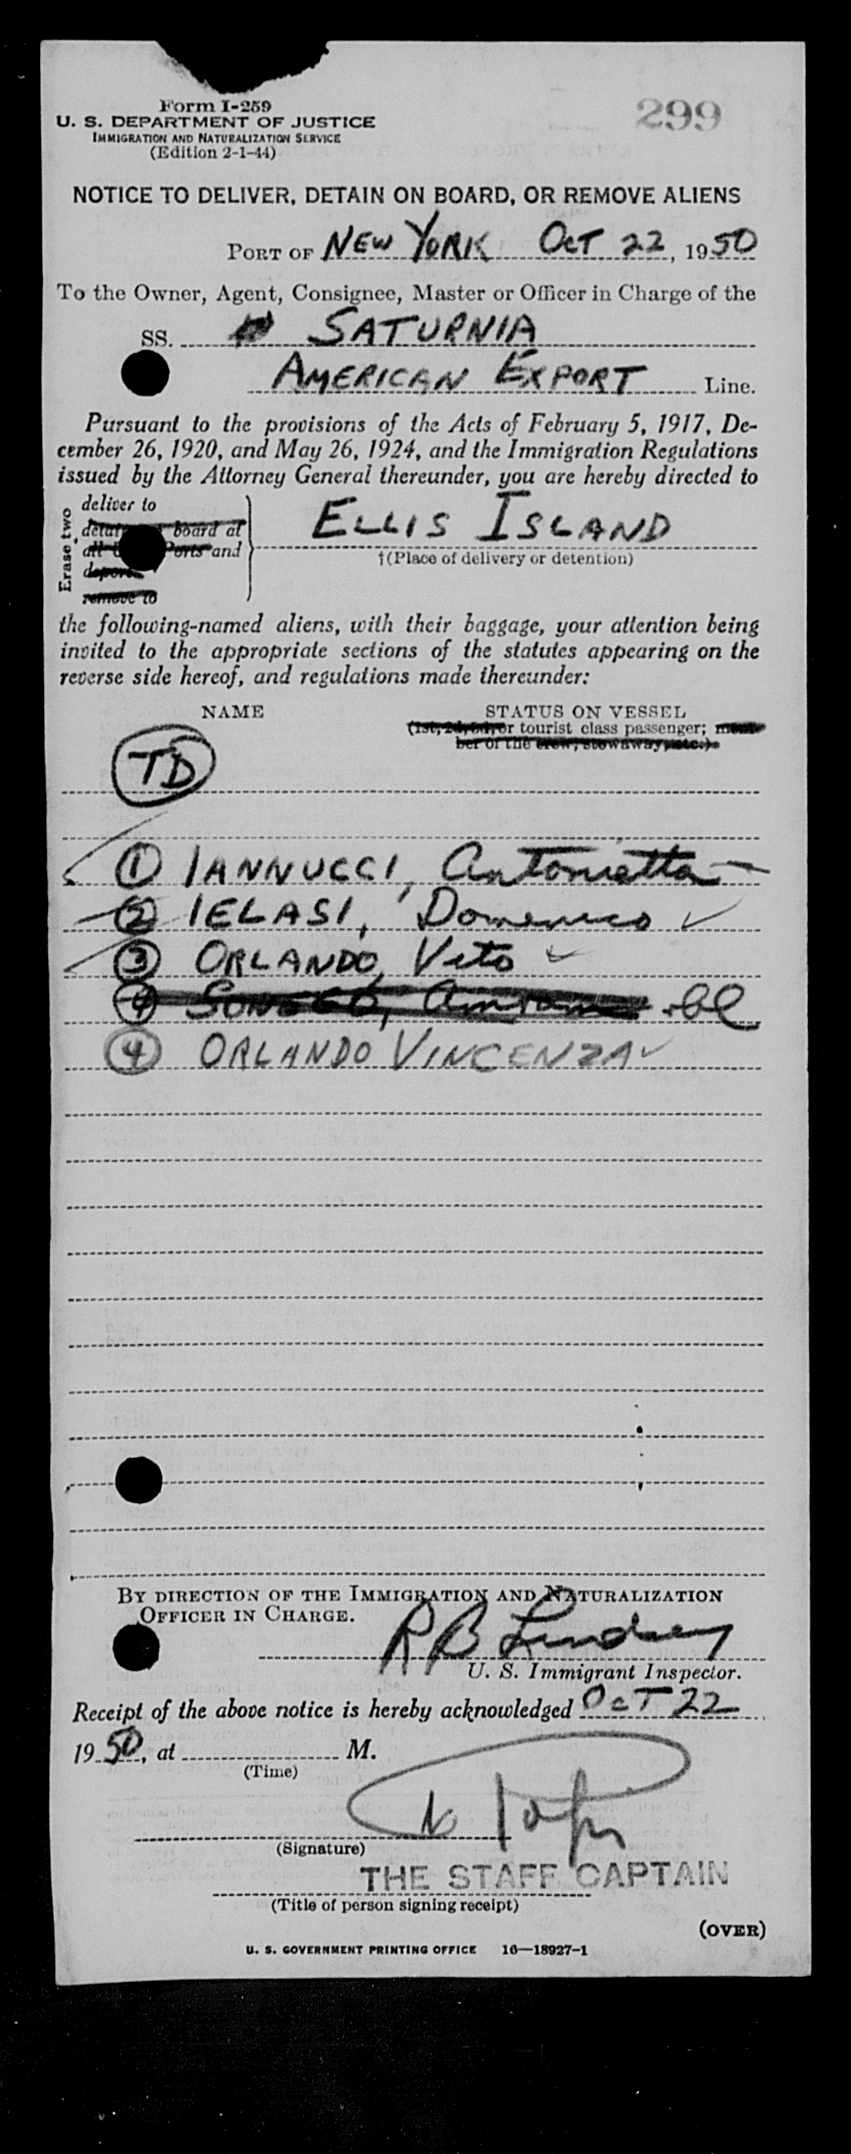 Form I-259
299
U. S. DEPARTMENT OF JUSTICE
IMMIGRATION AND NATURALIZATION SERVICE
(Edition 2-1-44)
NOTICE TO DELIVER, DETAIN ON BOARD, OR REMOVE ALIENS
PORT OF NEW YORK OCT 22, 1950
To the Owner, Agent, Consignee, Master or Officer in Charge of the
SS. SATURNIA
AMERICAN EXPORT Line.
Pursuant to the provisions of the Acts of February 5, 1917, De-
cember 26, 1920, and May 26, 1924, and the Immigration Regulations
issued by the Attorney General thereunder, you are hereby directed to
Erase two
deliver to
board at
Ports and
remove to
ELLIS ISLAND
†(Place of delivery or detention)
the following-named aliens, with their baggage, your attention being
invited to the appropriate sections of the statutes appearing on the
reverse side hereof, and regulations made thereunder:
NAME STATUS ON VESSEL
or tourist class passenger; mem-
ber of the crew, stowaway, etc.)
TD
1 IANNUCCI, Antonietta
2 IELASI, Domenico ✓
3 ORLANDO, Vito ✓
4
4 ORLANDO VINCENZA ✓
BY DIRECTION OF THE IMMIGRATION AND NATURALIZATION
OFFICER IN CHARGE.
R B Lindsey
U. S. Immigrant Inspector.
Receipt of the above notice is hereby acknowledged OCT 22
1950, at M.
(Time)
(Signature)
THE STAFF CAPTAIN
(Title of person signing receipt)
(OVER)
U. S. GOVERNMENT PRINTING OFFICE 16—18927-1